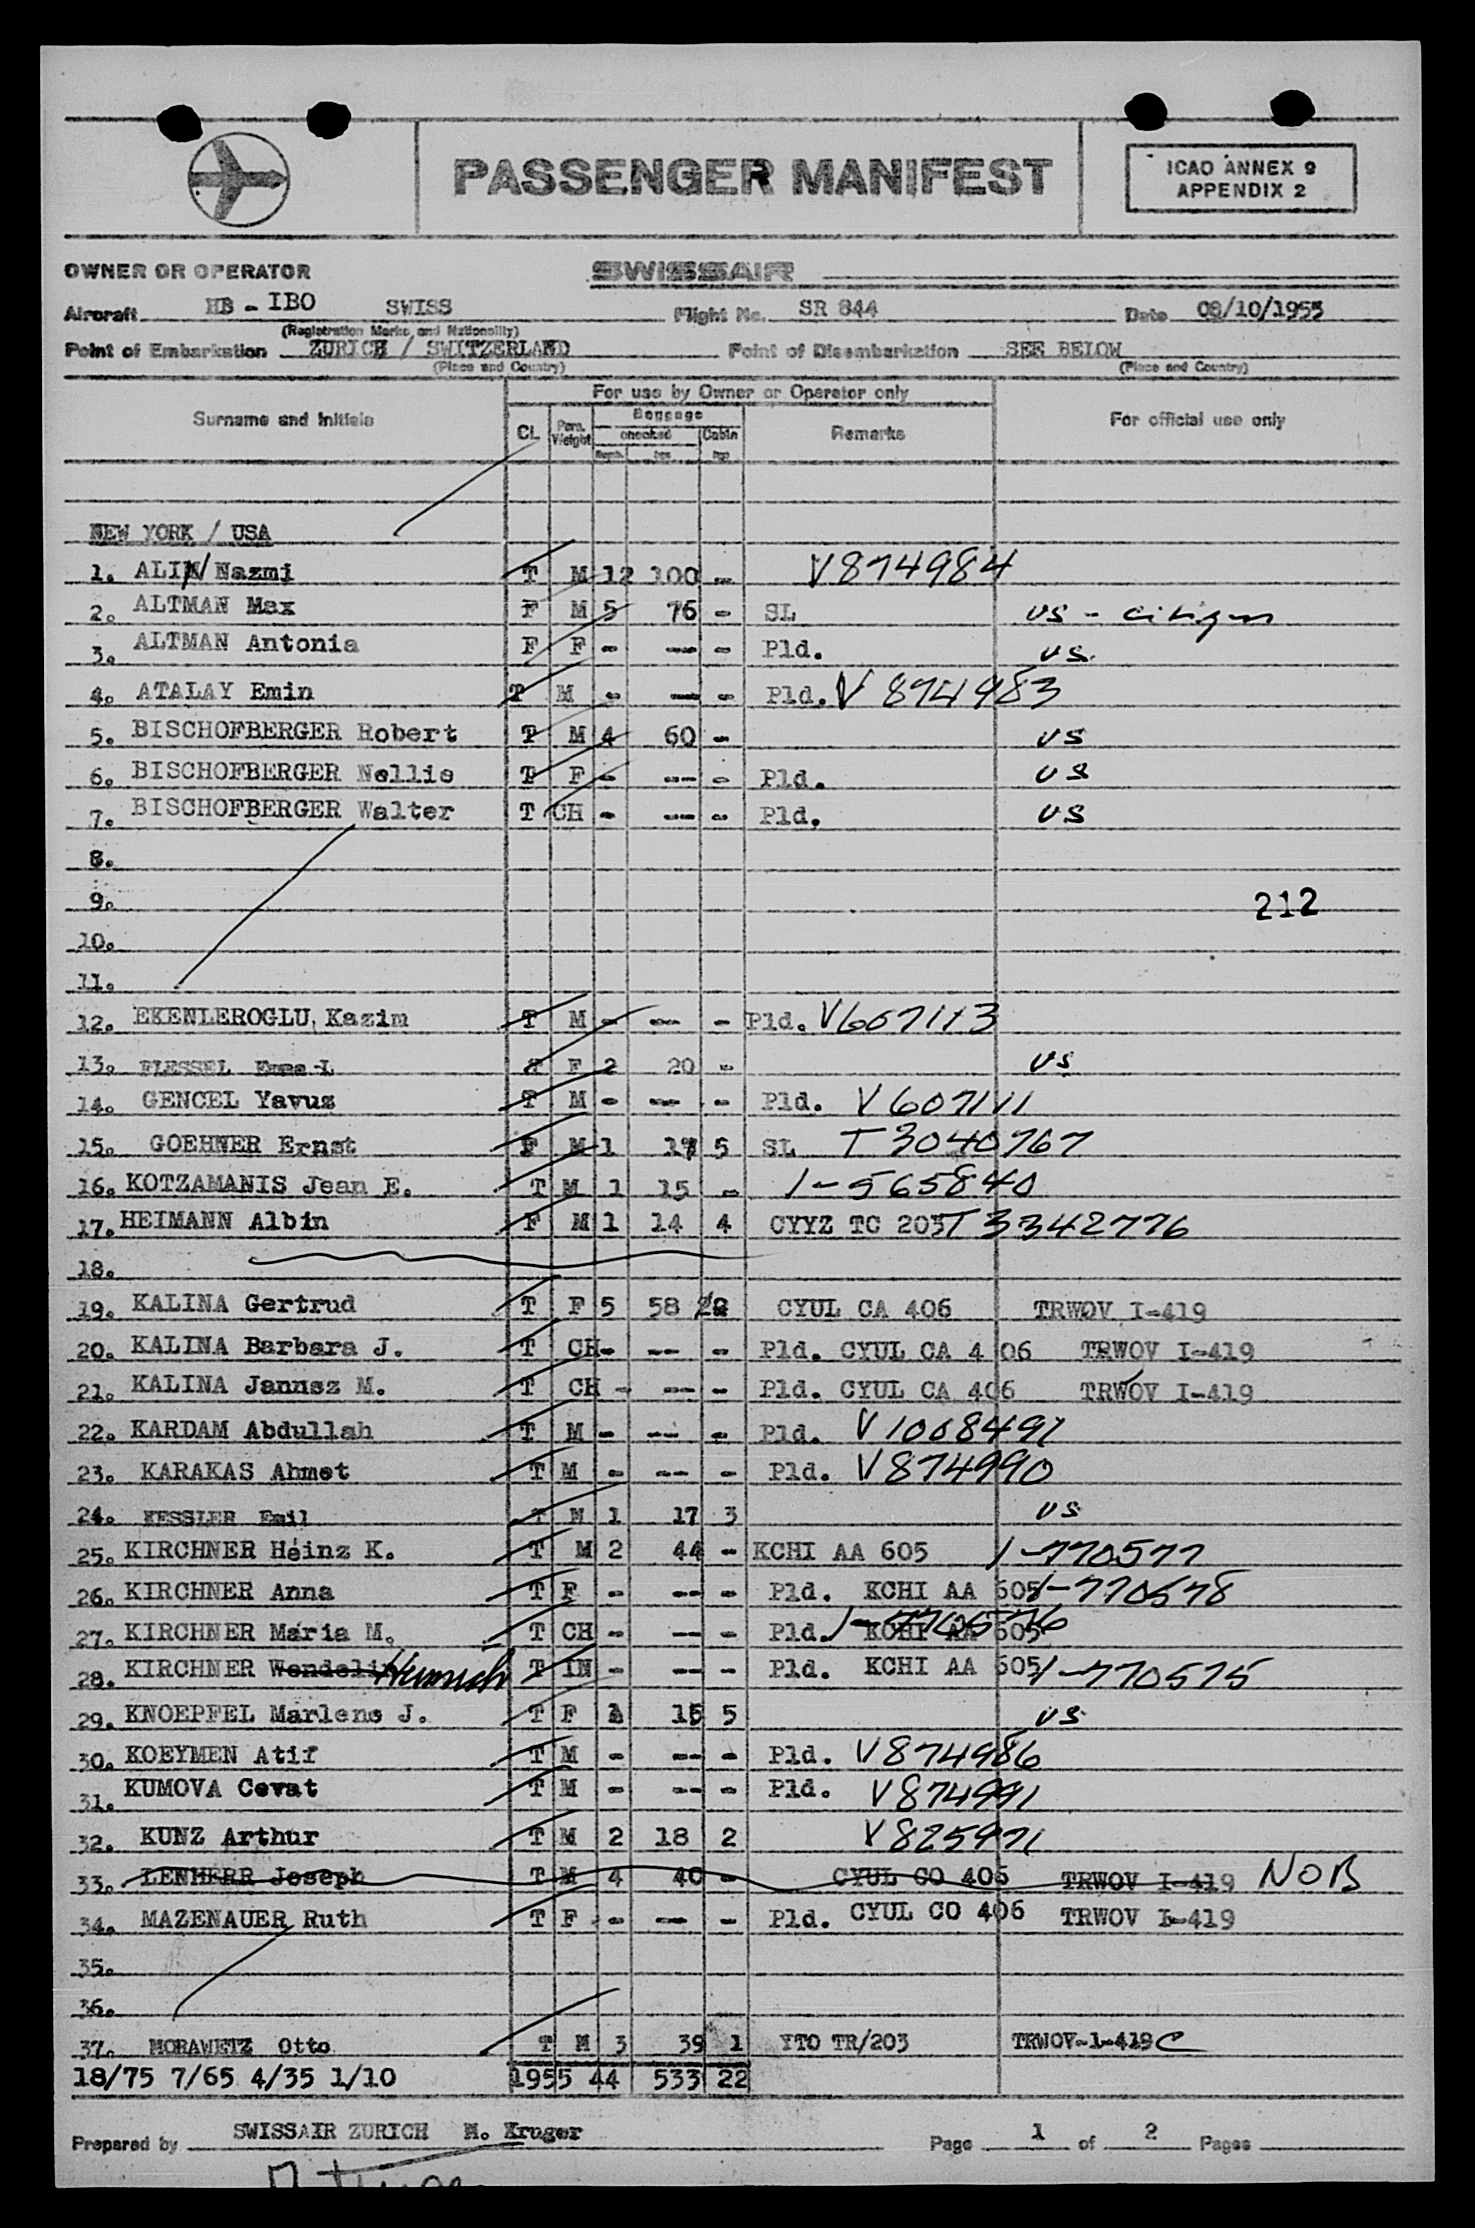 PASSENGER MANIFEST
ICAO ANNEX 9
APPENDIX 2
OWNER OR OPERATOR SWISSAIR
Aircraft HB - IBO SWISS Flight No. SR 844 Date 08/10/1955
(Registration Marks and Nationality)
Point of Embarkation ZURICH / SWITZERLAND Point of Disembarkation SEE BELOW
(Place and Country) (Place and Country)
For use by Owner or Operator only
Surname and Initials Cl. Pers. Weight Baggage checked Cabin Remarks For official use only
NEW YORK / USA
1. ALIN Nazmi T M 12 100 - V874984
2. ALTMAN Max F M 5 76 - SL US - citizen
3. ALTMAN Antonia F F - --- - Pld. US.
4. ATALAY Emin T M - --- - Pld. V 874983
5. BISCHOFBERGER Robert T M 4 60 - US
6. BISCHOFBERGER Nellie T F - --- - Pld. US
7. BISCHOFBERGER Walter T CH - --- - Pld. US
8.
9. 212
10.
11.
12. EKENLEROGLU Kazim T M - --- - Pld. V607113
13. FLESSEL Emma L F 2 20 - US
14. GENCEL Yavuz T M - --- - Pld. V607111
15. GOEHNER Ernst F M 1 17 5 SL T 3040767
16. KOTZAMANIS Jean E. T M 1 15 - 1-565840
17. HEIMANN Albin F M 1 14 4 CYYZ TC 203 T 3342776
18.
19. KALINA Gertrud T F 5 58 2 CYUL CA 406 TRWOV I-419
20. KALINA Barbara J. T CH - --- - Pld. CYUL CA 4 06 TRWOV I-419
21. KALINA Janusz M. T CH - --- - Pld. CYUL CA 406 TRWOV I-419
22. KARDAM Abdullah T M - --- - Pld. V 1068491
23. KARAKAS Ahmet T M - --- - Pld. V874990
24. KESSLER Emil T M 1 17 3 US
25. KIRCHNER Heinz K. T M 2 44 - KCHI AA 605 1-770577
26. KIRCHNER Anna T F - --- - Pld. KCHI AA 605 1-770578
27. KIRCHNER Maria M. T CH - --- - Pld. KCHI AA 605 1-770576
28. KIRCHNER Wendelin Heinrich T IN - --- - Pld. KCHI AA 605 1-770575
29. KNOEPFEL Marlene J. T F 1 15 5 US
30. KOEYMEN Atif T M - --- - Pld. V874986
31. KUMOVA Cevat T M - --- - Pld. V874991
32. KUNZ Arthur T M 2 18 2 V825971
33. LENHERR Joseph T M 4 40 - CYUL CO 406 TRWOV I-419 NOB
34. MAZENAUER Ruth T F - --- - Pld. CYUL CO 406 TRWOV I-419
35.
36.
37. MORAWETZ Otto T M 3 39 1 YTO TR/203 TRWOV-1-419 C
18/75 7/65 4/35 1/10 1955 44 533 22
Prepared by SWISSAIR ZURICH M. Kruger Page 1 of 2 Pages